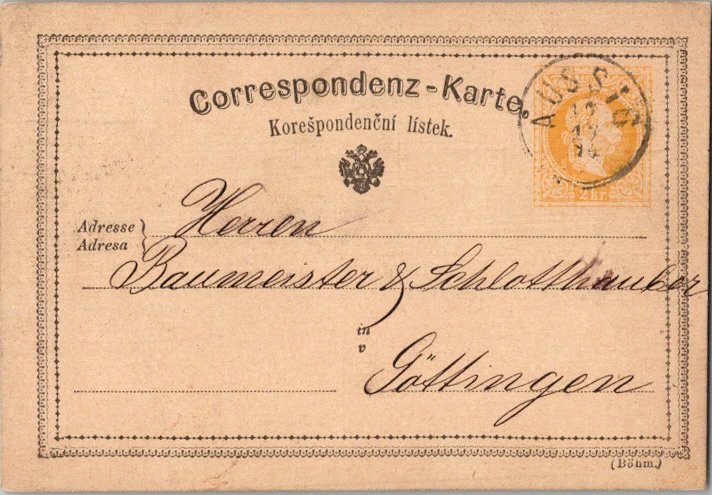 Correspondenz-Karte.
Korešpondenční lístek.
AUSSIG
Adresse
Adresa
Herren
Baumeister & Schlotthauber
in
v
Göttingen
(Böhm.)